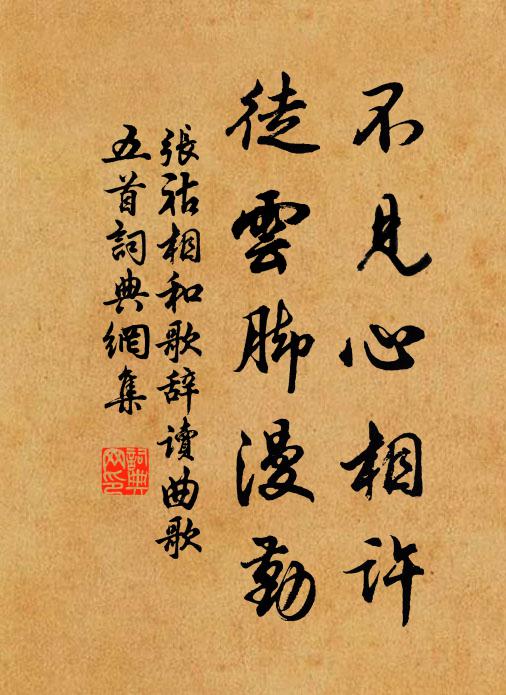 不見心相許
徒雲脚漫勤
張祜相和歌辞讀曲歌
五首詞典網集
詞典網印